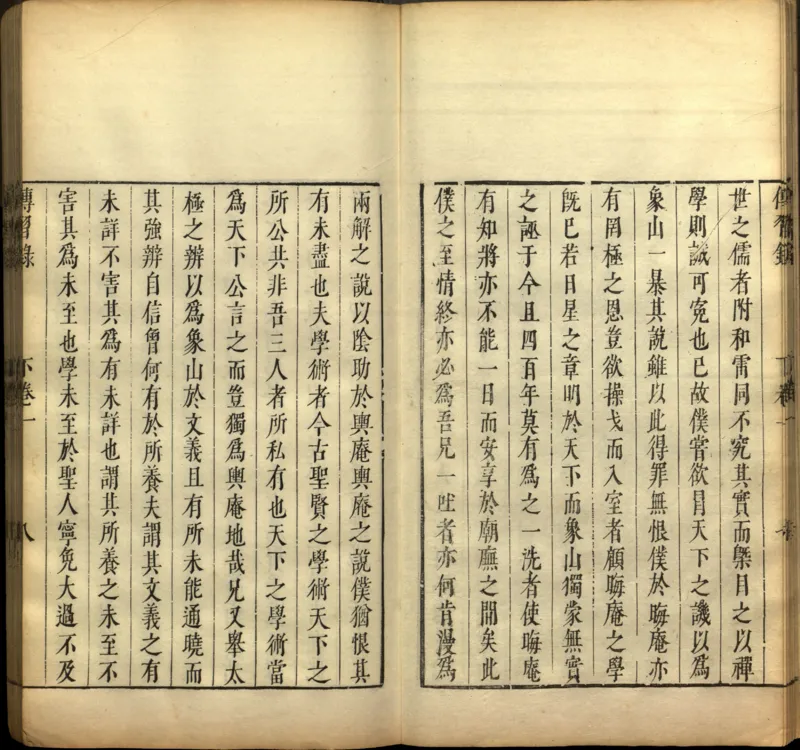 世之儒者附和雷同不究其實而槩目之以禪
學則誠可寃也已故僕嘗欲冐天下之譏以爲
象山一暴其說雖以此得罪無恨僕於晦庵亦
有罔極之恩豈欲操戈而入室者顧晦庵之學
旣已若日星之章明於天下而象山獨蒙無實
之誣于今且四百年莫有爲之一洗者使晦庵
有知將亦不能一日而安享於廟廡之間矣此
僕之至情終亦必爲吾兄一吐者亦何肯漫爲
兩解之說以陰助於輿庵輿庵之說僕猶恨其
有未盡也夫學術者今古聖賢之學術天下之
所公共非吾三人者所私有也天下之學術當
爲天下公言之而豈獨爲輿庵地哉兄又舉太
極之辨以爲象山於文義且有所未能通曉而
其強辨自信曾何有於所養夫謂其文義之有
未詳不害其爲有未詳也謂其所養之未至不
害其爲未至也學未至於聖人寧免大過不及
傳習錄 下卷一 八